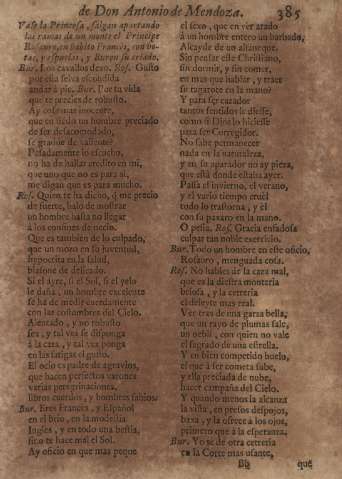 de Don Antonio de Mendoza. 385
Vase la Princesa, salgan apartando
las ramas de un monte el Principe
Rosauro, en habito Francès, con bo-
tas, y espuelas, y Buron su criado.
Bur. Los cavallos dexo. Ros. Gusto
por esta selva escondida
andar à pie. Bur. Por tu vida
que te precies de robusto.
Ay cosa mas inocente,
que en siendo un hombre preciado
de ser desacomodado,
se gradue de valiente?
Pesadamente lo escucho,
no ha de hallar credito en mi,
que uno que no es para sì,
me digan que es para mucho.
Ros. Quien te ha dicho, q me precio
de fuerte, balo de mostrar
un hombre hasta no llegar
à los confines de necio.
Que es tambien de lo culpado,
que un mozo en su juventud,
hypocrita en la salud,
blasone de delicado.
Si el ayre, si el Sol, si el yelo
le daña, un hombre excelente
se ha de medir cuerdamente
con las costumbres del Cielo.
Alentado, y no robusto
sea, y tal vez se disponga
à la caza, y tal vez ponga
en las fatigas el gusto.
El ocio es padre de agravios,
que hacen perfectos varones
varias peregrinaciones,
libros cuerdos, y hombres sabios.
Bur. Eres Francès, y Español
en el brio, en la modestia
Inglès, y en todo una bestia,
si no te hace mal el Sol.
Ay oficio en que mas peque
el seso, que en ver arado
à un hombre entero un barbado,
Alcayde de un altaneque.
Sin pensar este Christiano,
sin dormir, y sin comer,
en mas que hablar, y traer
su tagarote en la mano?
Y para ser cazador
tantos sentidos le diesse,
como si Dios lo hiciesse
para ser Corregidor.
No salte permanecer
nada en la naturaleza,
y en su aparador no ay pieza,
que està donde estaba ayer.
Passa el invierno, el verano,
y el vario tiempo cruel
todo lo trastorna, y el
con su paxaro en la mano.
O pesia. Ros. Gracia enfadosa
culpar tan noble exercicio.
Bur. Todo un hombre en este oficio,
Rosauro, menguada cosa.
Ros. No hables de la caza real,
que es la diestra monteria
belosa, y la cetreria
el deleyte mas real.
Ver tràs de una garza bella,
que un rayo de plumas sale,
un nebli, con quien no vale
el sagrado de una estrella.
Y en bien competido buelo,
el que à ser cometa sube,
y ella preciada de nube,
hacer campaña del Cielo.
Y quando menos la alcanza
la vista, en presos despojos,
baxa, y la ofrece à los ojos,
primero que à la esperanza.
Bur. Yo sè de otra cetreria
en la Corte mas usante,
Bb que